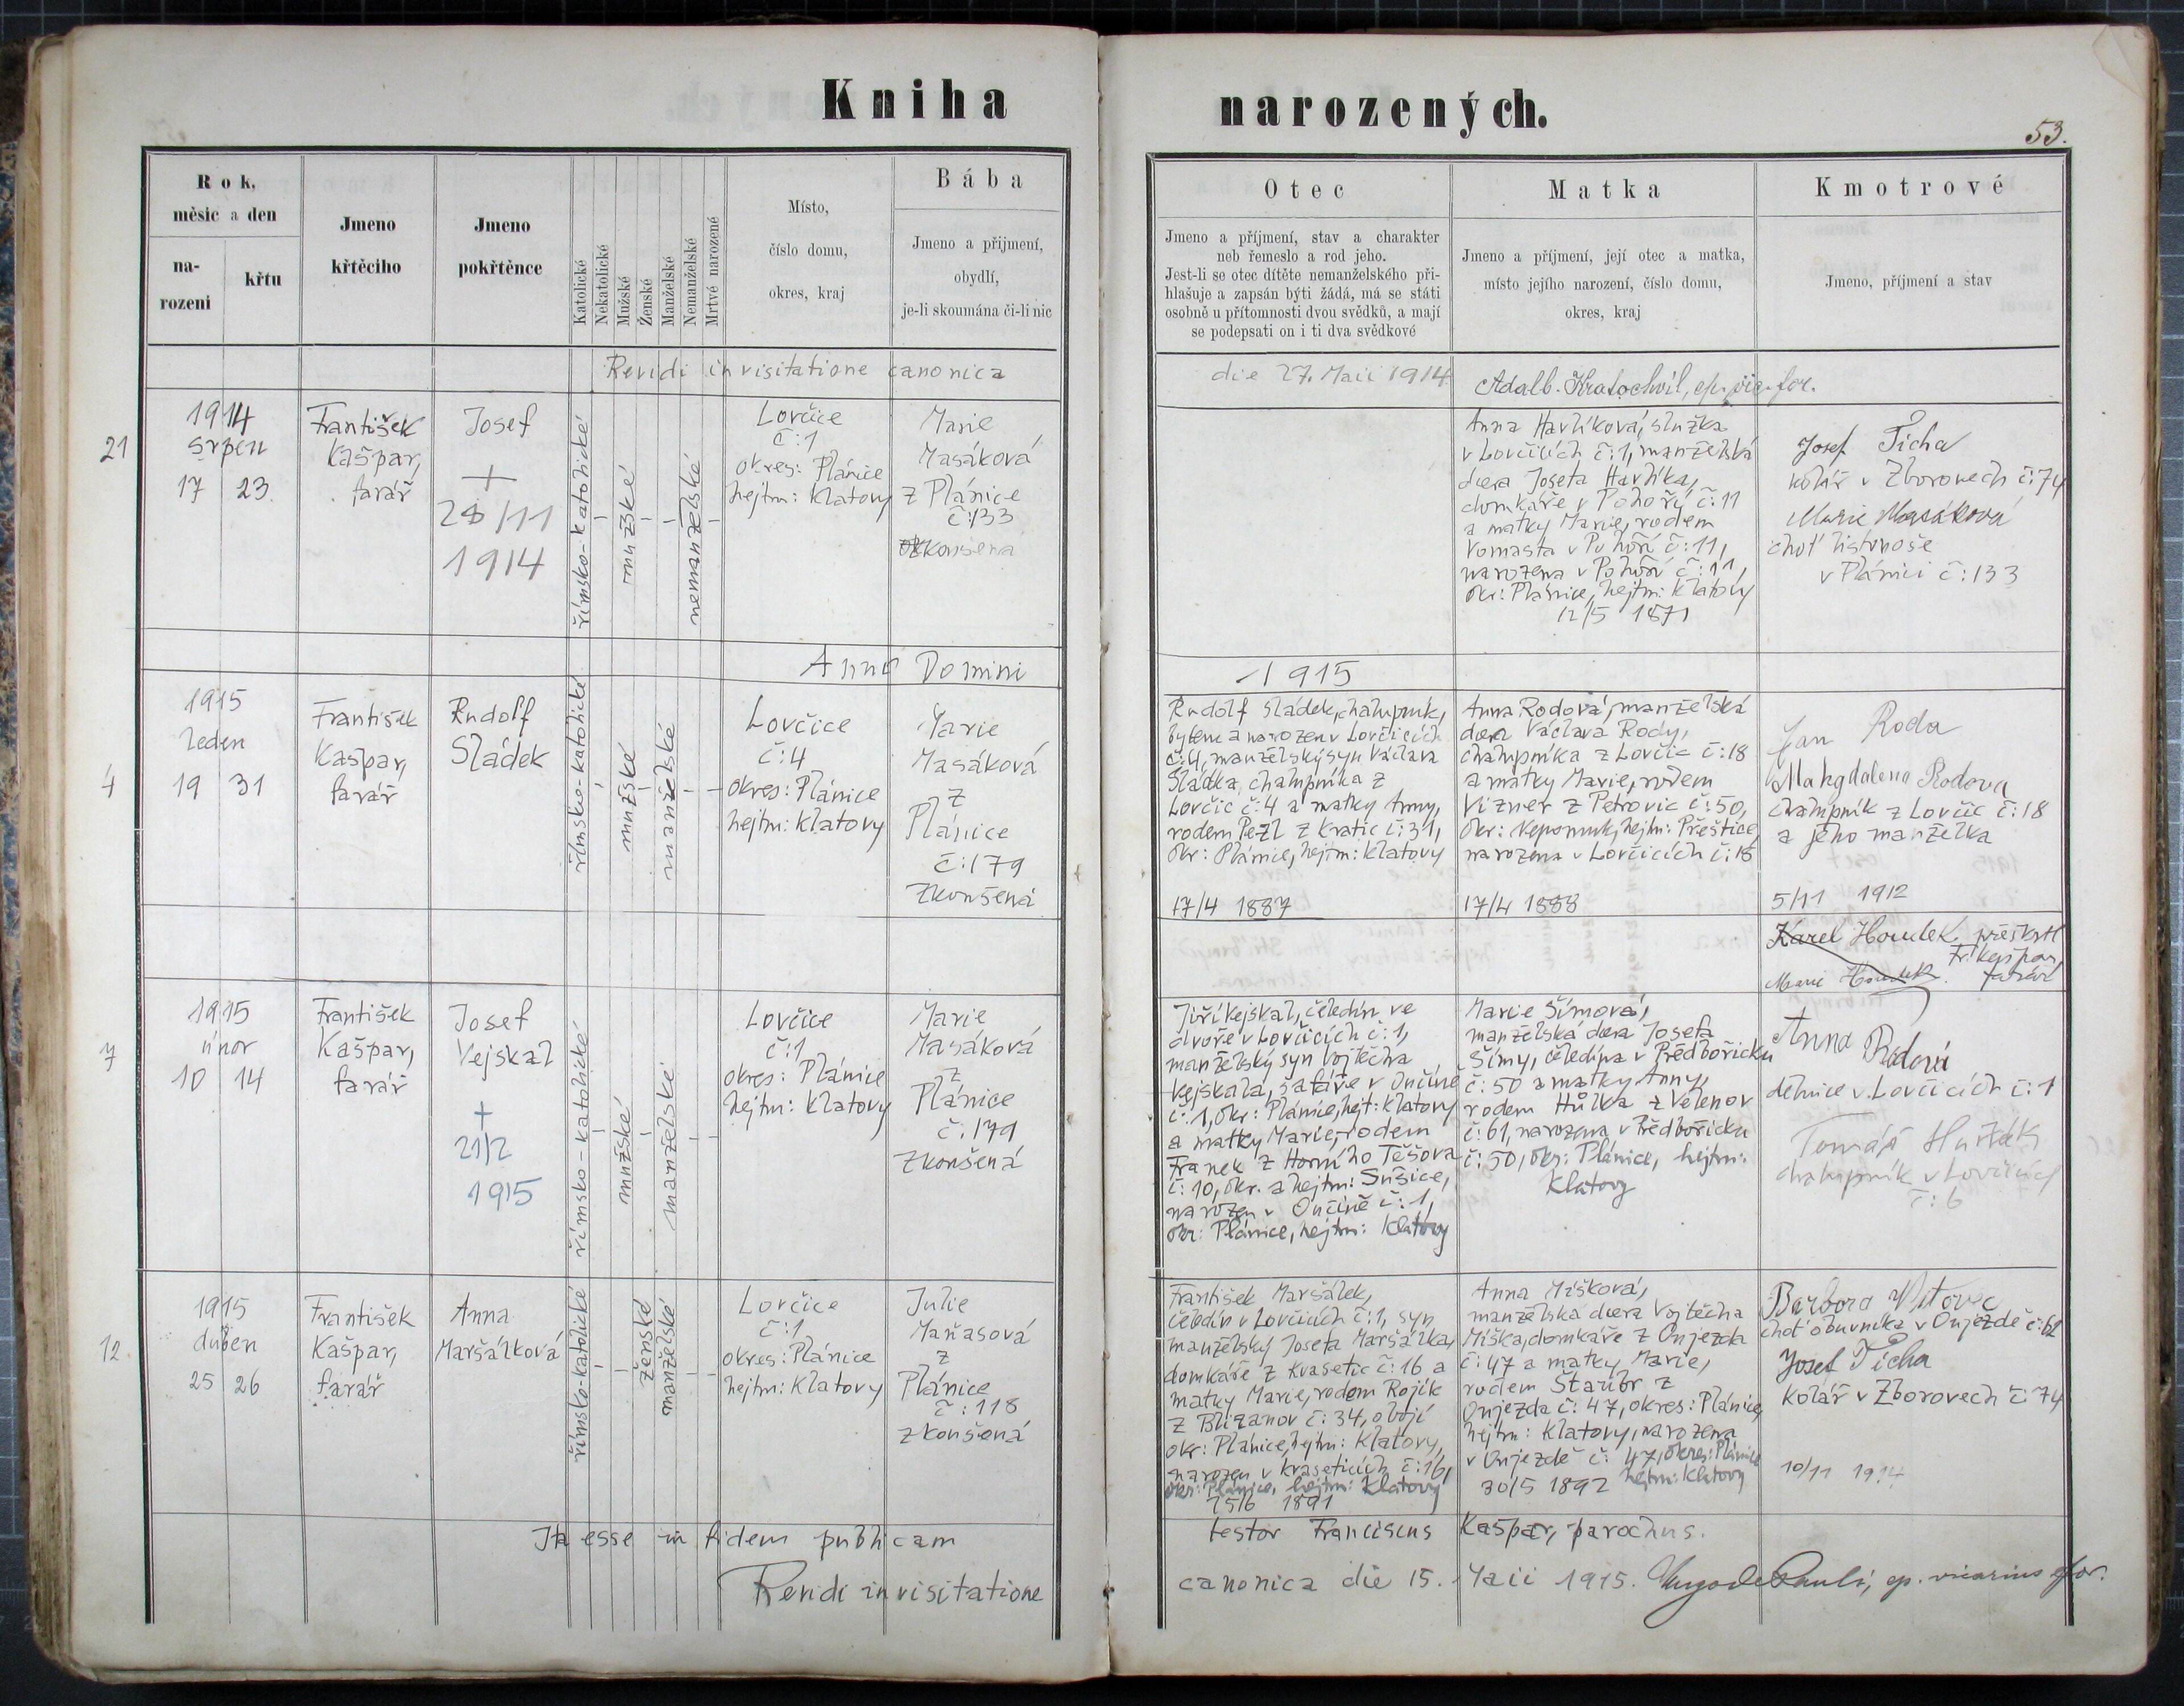 Kniha narozených.
53.
Rok,
měsic a den
na-
rozeni
křtu
Jmeno
křtěciho
Jmeno
pokřtěnce
Katolické
Nekatolické
Mužské
Ženské
Manželské
Nemanželské
Mrtvě narozené
Místo,
číslo domu,
okres, kraj
Bába
Jmeno a přijmení,
obydlí,
je-li skoumána či-li nic
Otec
Jmeno a příjmení, stav a charakter
neb řemeslo a rod jeho.
Jest-li se otec dítěte nemanželského při-
hlašuje a zapsán býti žádá, má se státi
osobně u přítomnosti dvou svědků, a mají
se podepsati on i ti dva svědkové
Matka
Jmeno a příjmení, její otec a matka,
místo jejího narození, číslo domu,
okres, kraj
Kmotrové
Jmeno, příjmení a stav
Revidi in visitatione canonica die 27. Maii 1914 Adalb. Kratochvil, ep. vic. for.
21
1914
srpen
17 23.
František
Kašpar,
farář
Josef
+
1914
římsko-katolické
mužské
nemanželské
Lovčice
č:1
okres: Plánice
hejtm: Klatovy
Marie
Masáková
z Plánice
č:133
zkoušená
Anna Havlíková, služka
v Lovčicích č:1, manželská
dcera Josefa Havlíka,
domkáře v Pohoří č:11
a matky Marie, rodem
Vomasta v Pohoří č:11,
narozena v Pohoří č:11,
okr: Plánice, hejtm: Klatovy
12/5 1871
Josef Ticha
kolář v Zborovech č:74
Marie Masáková
choť listonoše
v Plánici č:133
Anno Domini 1915
4
1915
leden
19 31
František
Kašpar,
farář
Rudolf
Sládek
římsko-katolické
mužské
manželské
Lovčice
č:4
okres: Plánice
hejtm: Klatovy
Marie
Masáková
z
Plánice
č:179
zkoušená
Rudolf Sládek, chalupník,
bytem a narozen v Lovčicích
č:4, manželský syn Václava
Sládka, chalupníka z
Lovčic č:4 a matky Anny,
rodem Pezl z Kratic č:31,
okr: Plánice, hejtm: Klatovy
17/4 1887
Anna Rodová, manželská
dcera Václava Rody,
chalupníka z Lovčic č:18
a matky Marie, rodem
Vizner z Petrovic č:50,
okr: Nepomuk, hejtm: Přeštice,
narozena v Lovčicích č:18
17/4 1888
Jan Roda
Mahgdalena Rodova
chalupník z Lovčic č:18
a jeho manželka
5/11 1912
Karel Houdek přeškrtl
Fr. Kašpar,
Marie Houdek farář
7
1915
únor
10 14
František
Kašpar,
farář
Josef
Vejskal
+
21/2
1915
římsko-katolické
mužské
manželské
Lovčice
č:1
okres: Plánice
hejtm: Klatovy
Marie
Masáková
z
Plánice
č:179
zkoušená
Jiří Vejskal, čeledín ve
dvoře v Lovčicích č:1,
manželský syn Vojtěcha
Vejskala, šafáře v Ončíně
č:1, okr: Plánice, hejt: Klatovy
a matky Marie, rodem
Franek z Horního Těšova
č:10, okr. a hejtm: Sušice,
narozen v Ončíně č:1,
okr: Plánice, hejtm: Klatovy
Marie Šímová,
manželská dcera Josefa
Šímy, čeledína v Předbořicku
č:50 a matky Anny,
rodem Hůlka z Velenov
č:61, narozena v Předbořicku
č:50, okr: Plánice, hejtm:
Klatovy
Anna Rodová
dělnice v Lovčicích č:1
Tomáš
chalupník v Lovčicích
č:6
12
1915
duben
25 26
František
Kašpar,
farář
Anna
Maršálková
římsko-katolické
ženské
manželské
Lovčice
č:1
okres: Plánice
hejtm: Klatovy
Julie
Maňasová
z
Plánice
č:118
zkoušená
František Maršálek,
čeledín v Lovčicích č:1, syn
manželský Josefa Maršálka,
domkáře z Kvasetic č:16 a
matky Marie, rodem Rojík
z Blizanov č:34, obojí
okr: Plánice, hejtm: Klatovy,
narozen v Kvaseticích č:16,
okr: Plánice, hejtm: Klatovy
25/6 1891
Anna Mišková,
manželská dcera Vojtěcha
Miška, domkáře z Onjezda
č:47 a matky Marie,
rodem Štaubr z
Onjezda č:47, okres: Plánice,
hejtm: Klatovy, narozena
v Onjezdě č:47, okres: Plánice
30/5 1892 hejtm: Klatovy
Barbora Vitovec
choť obuvníka v Onjezdě č:62
Josef Ticha
kolář v Zborovech č:74
10/11 1914
Ita esse in fidem publicam testor Franciscus Kašpar, parochus.
Revidi in visitatione canonica die 15. Maii 1915. ep. vicarius for.